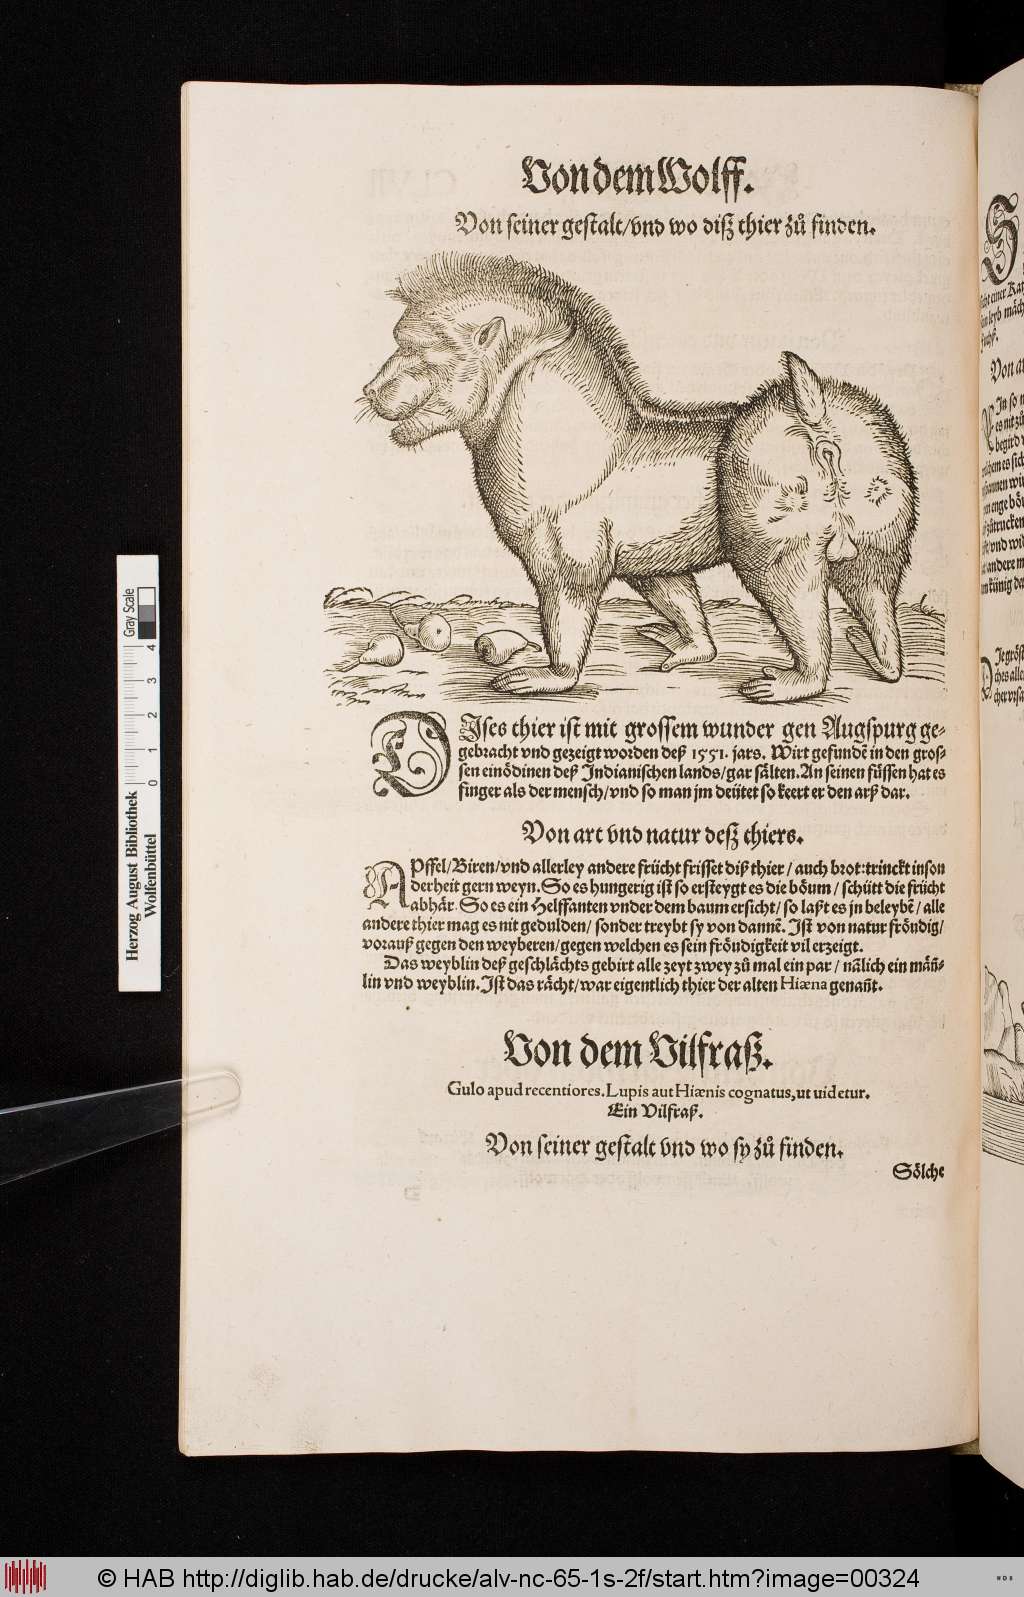 Von dem Wolff.
Von seiner gestalt/vnd wo disz thier zů finden.
DIses thier ist mit grossem wunder gen Augspurg ge-
gebracht vnd gezeigt worden deß 1551. jars. Wirt gefundē in den gros-
sen einödinen deß Indianischen lands/gar sälten. An seinen füssen hat es
finger als der mensch/vnd so man jm deütet so keert er den arß dar.
Von art vnd natur desz thiers.
APffel/Biren/vnd allerley andere frücht frisset diß thier / auch brot: trinckt inson
derheit gern weyn. So es hungerig ist so ersteygt es die böum / schütt die frücht
abhär. So es ein Helffanten vnder dem baum ersicht/ so laßt es jn beleybē / alle
andere thier mag es nit gedulden/ sonder treybt sy von dannē. Ist von natur fröudig/
vorauß gegen den weyberen/gegen welchen es sein fröudigkeit vil erzeigt.
Das weyblin deß geschlächts gebirt alle zeyt zwey zů mal ein par / nālich ein mäñ-
lin vnd weyblin. Ist das rächt/war eigentlich thier der alten Hiæna genañt.
Von dem Vilfraß.
Gulo apud recentiores. Lupis aut Hiænis cognatus, ut uidetur.
Ein Vilfraß.
Von seiner gestalt vnd wo sy zů finden.
Sölche
Herzog August Bibliothek
Wolfenbüttel
0 1 2 3 4
Gray Scale
© HAB http://diglib.hab.de/drucke/alv-nc-65-1s-2f/start.htm?image=00324